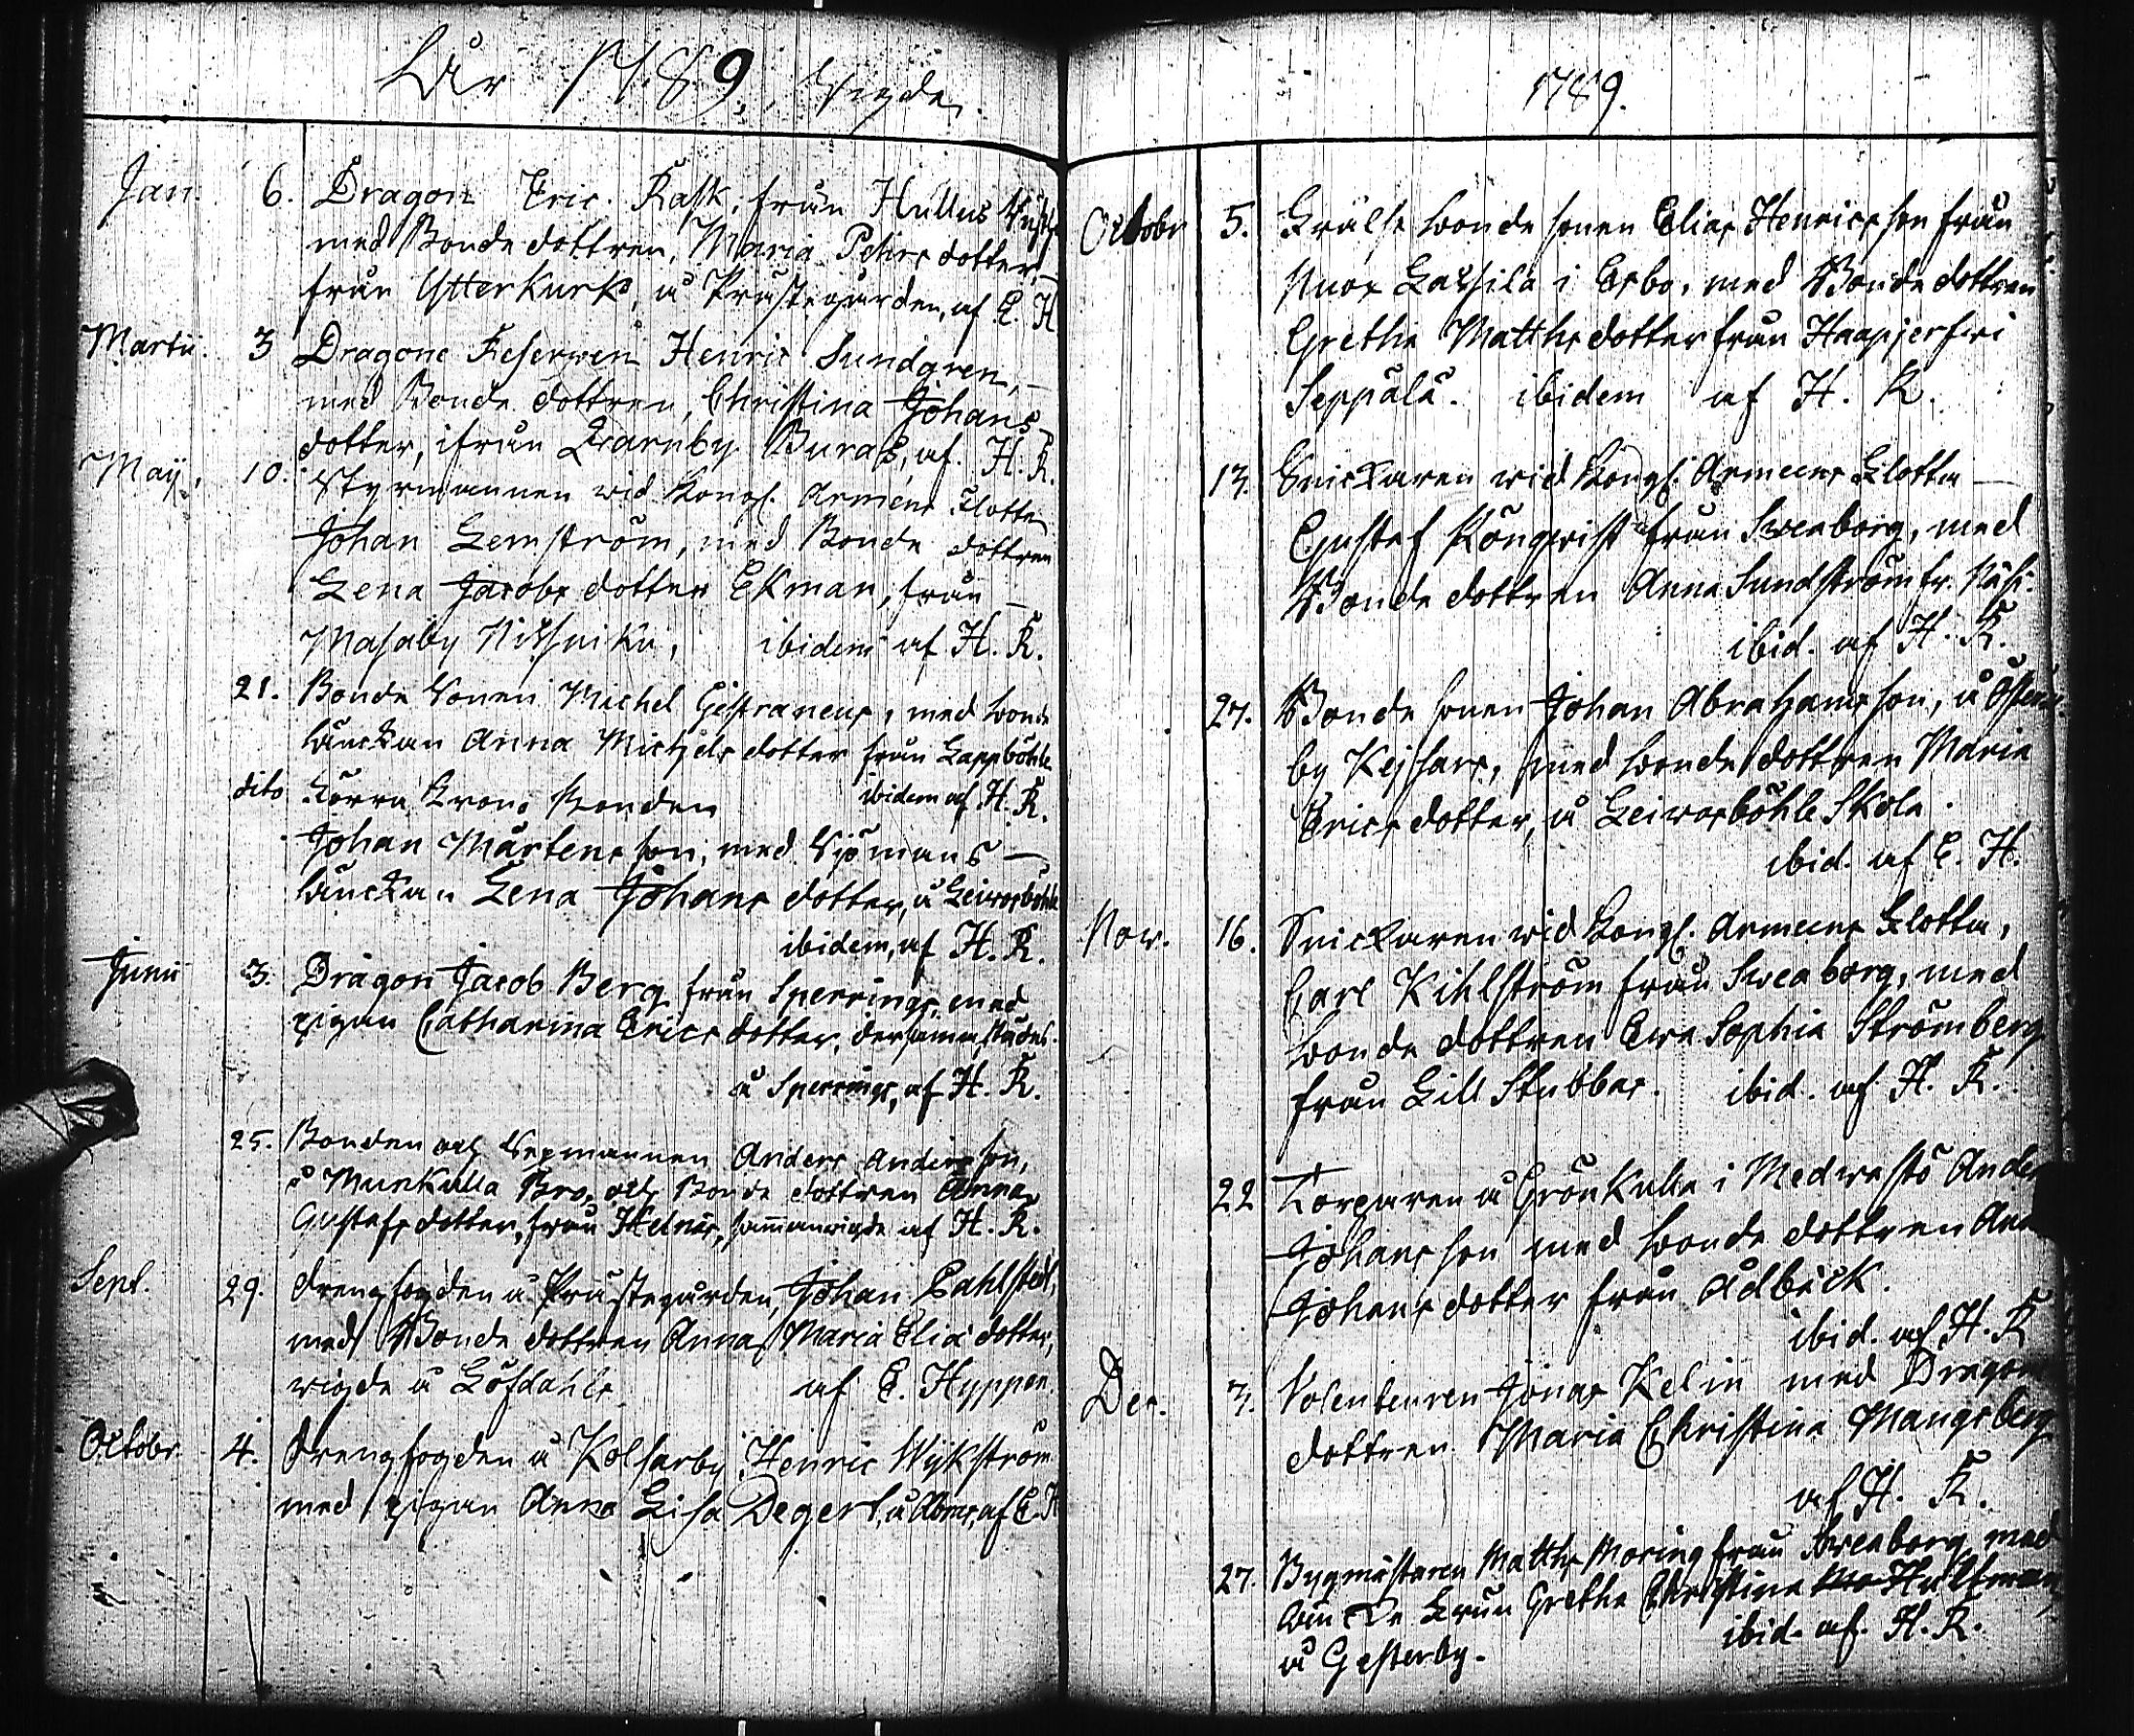 År 1789, Vigde.
Jan. 6. Dragon Eric Rask, från Hullus
med Bonde dottren, Maria Pehrs dotter,
från Ytterkurk, å Prästegården, af E. H
Martii. 3 Dragone Reserven Henric Sundgren,
med Bonde dottren, Christina Johans
dotter, ifrån Qvarnby Buras, af H. R.
Maij, 10. Styrmannen vid Kongl. Armèns Flotta
Johan Lemström, med Bonde dottren
Lena Jacobs dotter Ekman, från
Masaby Nissniku, ibidem af H. R.
21. Bonde Sonen Michel Gestraneus, med bonde
änckan Anna Michels dotter från Lappböhle
ibidem af H. R.
dito Kårra Krono Bonden
Johan Mårtensson, med Sjömans
änckan Lena Johans dotter, å Leivosböhle
ibidem, af H. R.
Junii 3. Dragon Jacob Berg från Sperrings, med
pigan Catharina Erics dotter, dersammastädes.
å Sperrings, af H. R.
25. Bonden och Sexmannen Anders Andersson,
å Munkulla Bro, och Bonde dottren Anna
Gustafs dotter, från Helnäs, sammanvigde af H. R.
Sept. 29. Drengfogden å Prästegården, Johan Dahlstedt,
med Bonde dottren Anna Maria Eliæ dotter,
vigde å Löfdahls af E. Hyppen.
Octobr. 4. Drengfogden å Kolsarby Henric Wijkström
med pigan Anna Lisa Degert, å af E. H
1789.
Octobr 5. Frälse bonde sonen Elias Henricsson från
Nuox Lassila i Esbo, med Bonde dottren
Gretha Matths dotter från Haapjerfwi
Seppälä. ibidem af H. R.
13. Snickaren vid Kongl. Armeens Flotta
Gustaf Rönqvist från Sweaborg, med
Bonde dottren Anna Sundström fr. Näse.
ibid. af H. R.
27. Bonde sonen Johan Abrahamsson, å Österby
by Kejsars, med bonde dottren Maria
Erics dotter, å Leivosböhle Skola.
ibid. af E. H.
Nov. 16. Snickaren vid Kongl. Armeens Flotta,
Carl Kihlström från Sweaborg, med
bonde dottren Ewa Sophia Strömberg
från Lill Stubbas. ibid. af H. R.
22 Torparen å Grönkulla i Medvastö Anders
Johansson med bonde dottren Anna
Johans dotter från Ådbäck.
ibid. af H. R
Dec. 3. Volenteuren Jonas Kelin med Dragon
dottren Maria Christina Mangsberg
af H. R.
27. Bygmästaren Matths Moring från Sweaborg med
änke Frun Gretha Christina Hultman,
å Gesterby. ibid. af H. R.